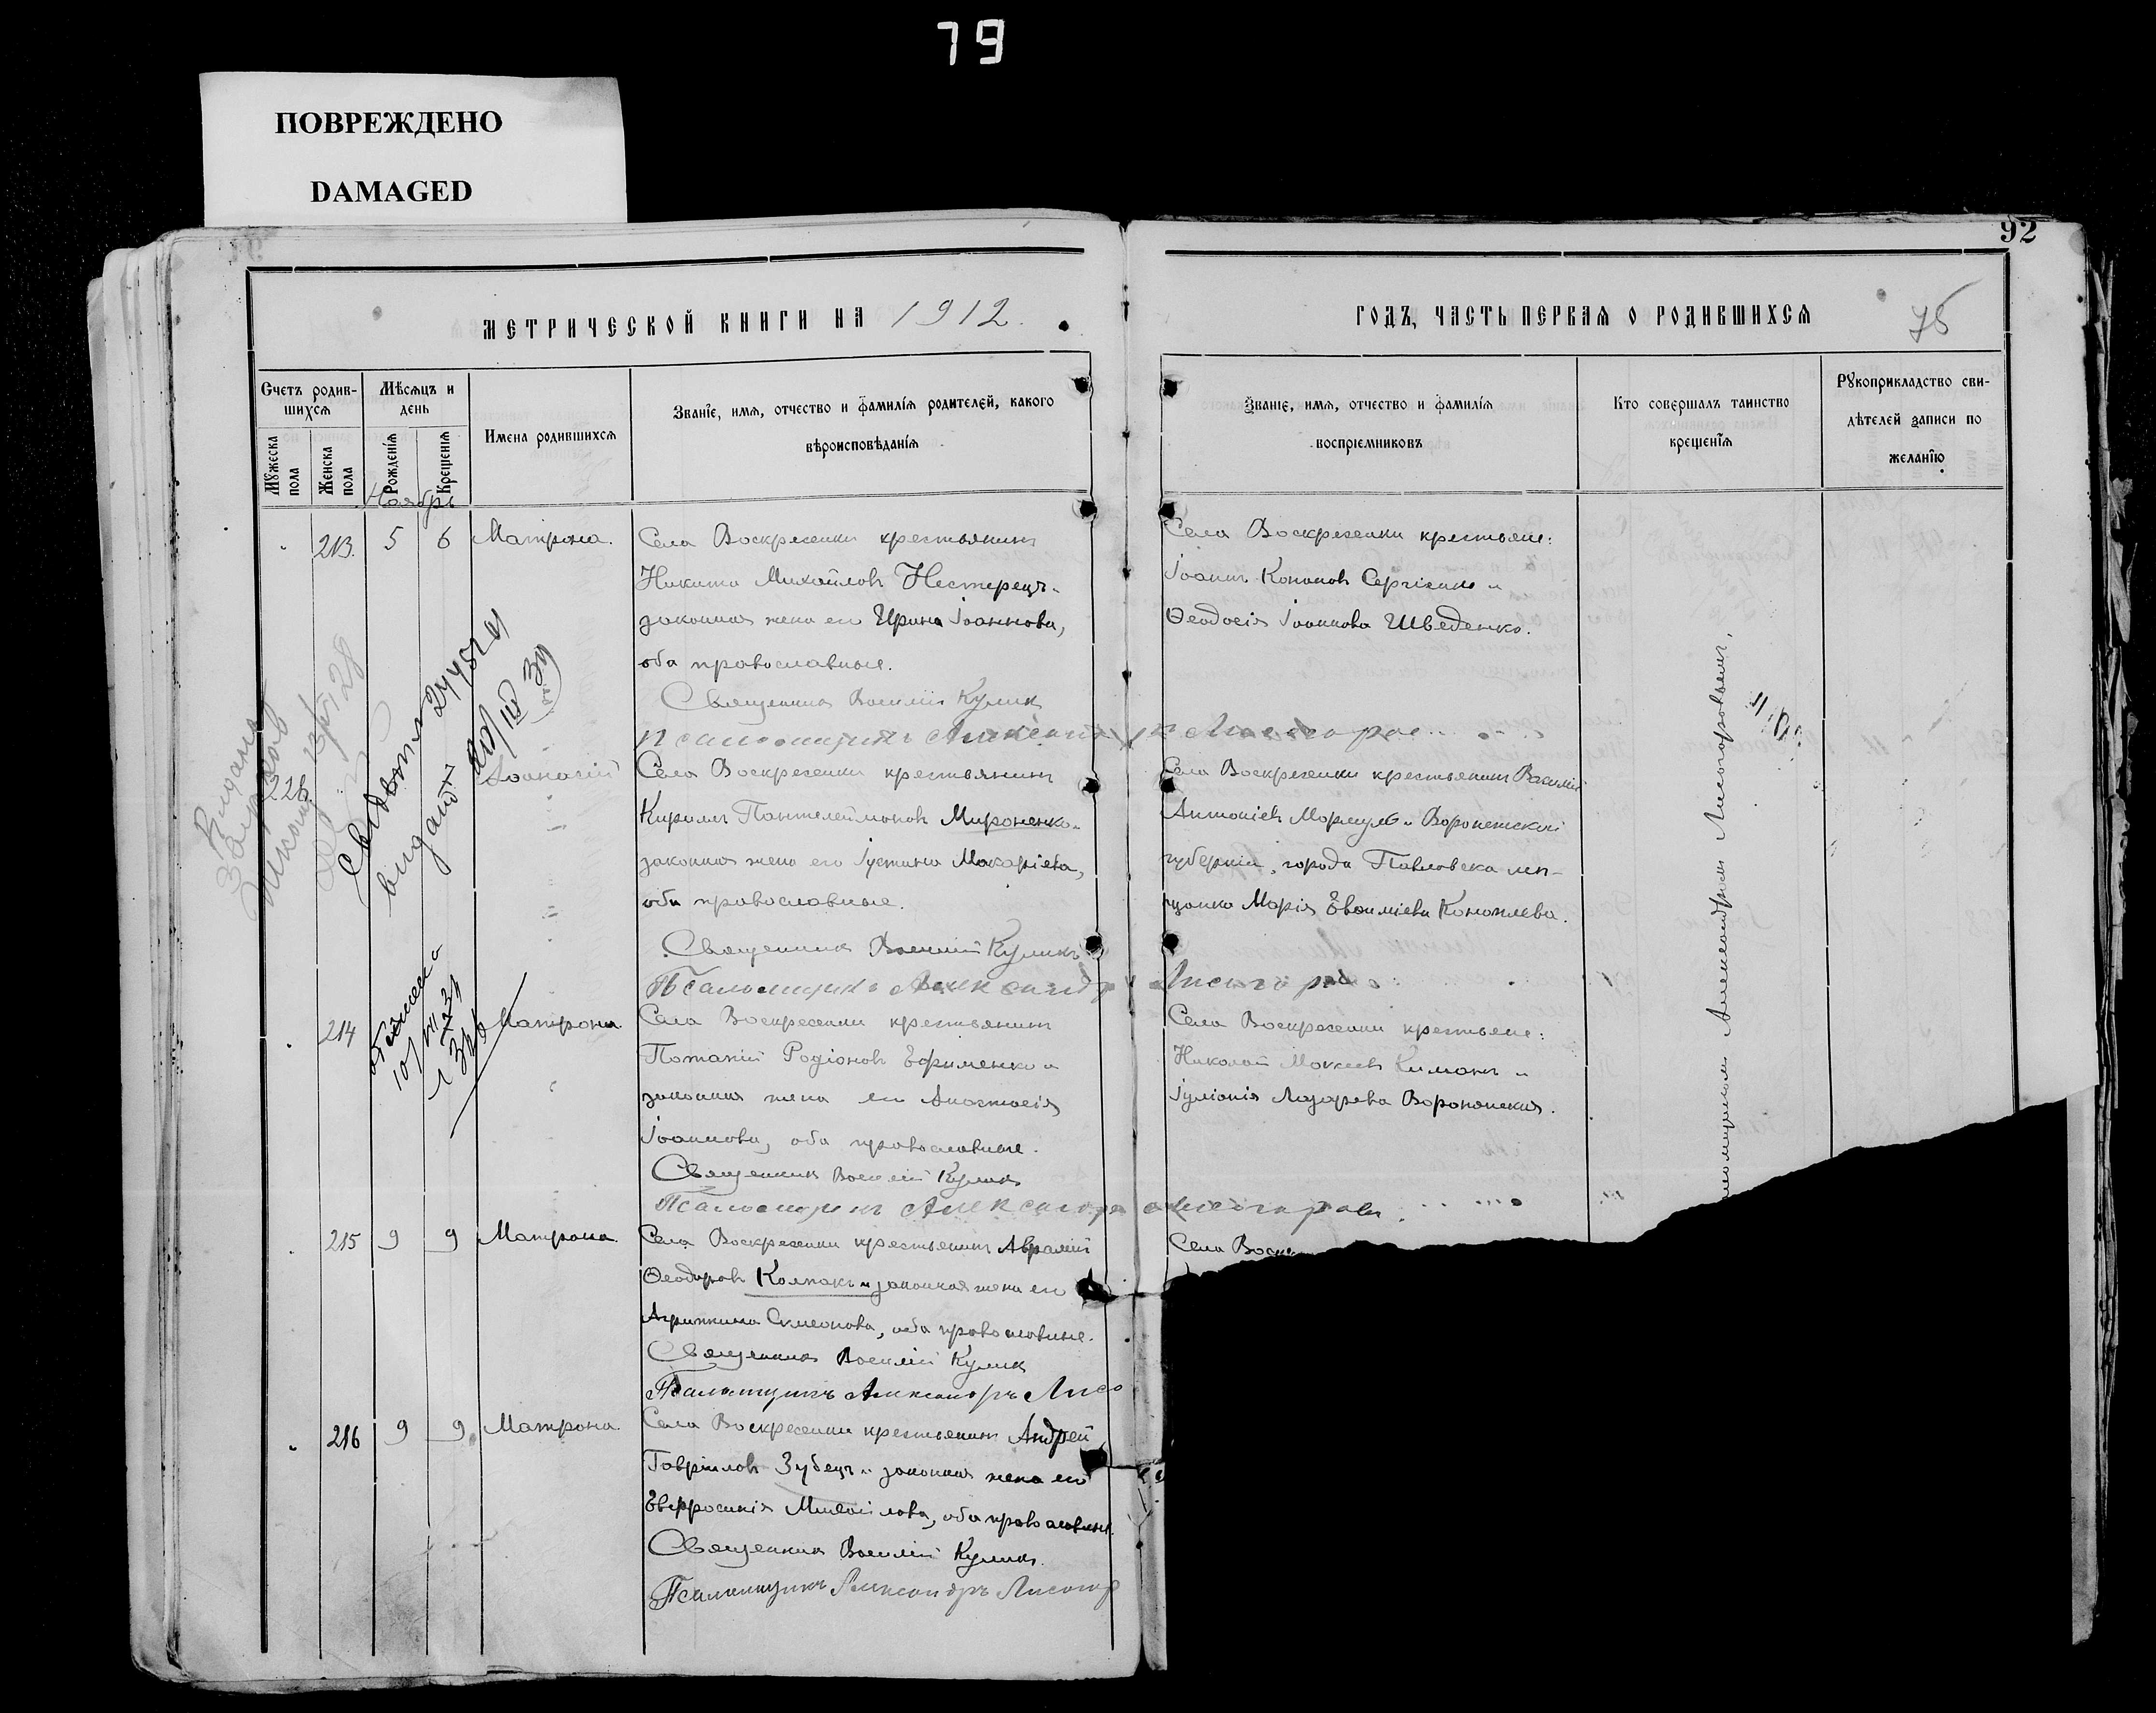 79
ПОВРЕЖДЕНО
DAMAGED
92
МЕТРИЧЕСКОЙ КНИГИ НА 1912.
ГОДЪ, ЧАСТЬ ПЕРВАЯ О РОДИВШИХСЯ
75
Счетъ родив-
шихся
Мужеска
пола
Женска
пола
Мѣсяцъ и
день
Рожденія
Крещенія
Имена родившихся
Званіе, имя, отчество и фамилія родителей, какого
вѣроисповѣданія
Званіе, имя, отчество и фамилія
воспріемниковъ
Кто совершалъ таинство
крещенія
Рукоприкладство сви-
дѣтелей записи по
желанію
Ноябрь
213. 5 6 Матрона.
Села Воскресенки крестьянинъ
Никита Михайловъ Нестерецъ и
законная жена его Ирина Іоаннова,
оба православные.
Священникъ Василій Кулик
Села Воскресенки крестьяне:
Іоаннъ Кононовъ и
Ѳеодосія Іоаннова Шведенко.
Выдана
Свѣдот
видано
226
Села Воскресенки крестьянинъ
Кириллъ Пантелеймоновъ Мироненко и
законная жена его Іустина Макаріева,
оба православные.
Священникъ Василій Куликъ
Псаломщикъ Александръ Лисогоров
Села Воскресенки крестьянинъ Василій
Антоніевъ и Воронежской
губерніи, города Павловска мѣ-
щанка Марія Евѳиміева Коноплева.
214 Матрона
Села Воскресенки крестьянинъ
Потапій Родіоновъ Ефименко и
законная жена его Анастасія
Іоаннова, оба православные.
Священникъ Василій Куликъ
Псаломщикъ Александръ Лисогоров
Села Воскресенки крестьяне:
Николай и
Іуліанія Лазарева
215 9 9 Матрона.
Села Воскресенки крестьянинъ Аврамій
Ѳеодоровъ Колпакъ и законная жена его
Агриппина Симеонова, оба православные.
Священникъ Василій Кулик
Псаломщикъ Александръ Лисо
Села Воск
216 9 9 Матрона
Села Воскресенки крестьянинъ Андрей
Гавріиловъ Зубецъ и законная жена его
Евфросинія Михайлова, оба православн.
Священникъ Василій Куликъ.
Псаломщикъ Александръ Лисогор
Александромъ Лисогоровымъ.